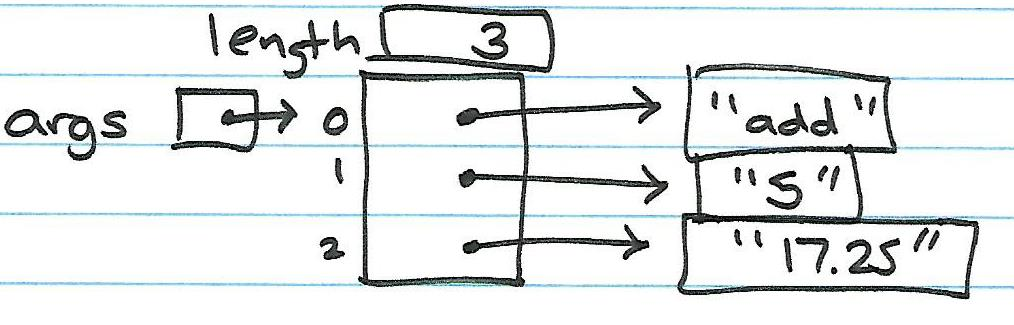 length 3
args 0 "add"
1 "5"
2 "17.25"